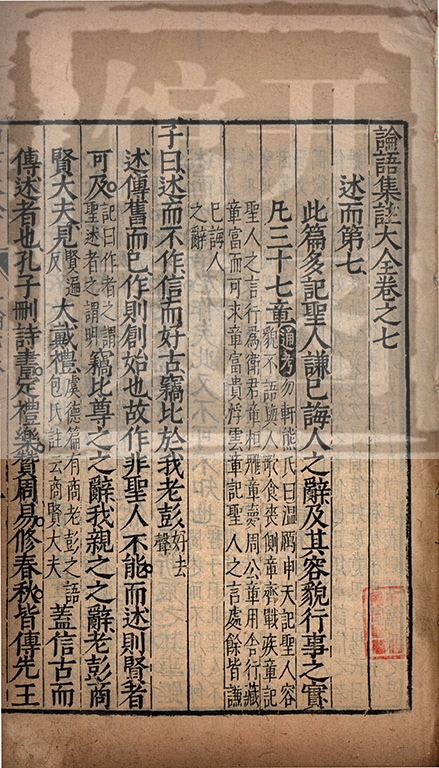 論語集註大全卷之七
述而第七
此篇多記聖人謙已誨人之辭及其容貌行事之實
凡三十七章通考勿軒熊氏曰溫厲申夭記聖人容
貌不語與人歌食喪側章齊戰疾章記
聖人之言行爲衛君章桓魋章夢周公章用舍行藏
章富而可求章富貴浮雲章記聖人之言處餘皆謙
已誨人
之辭
子曰述而不作信而好古竊比於我老彭好去
聲
述傳舊而已作則創始也故作非聖人不能而述則賢者
可及記曰作者之謂
聖述者之謂明竊比尊之之辭我親之之辭老彭商
賢大夫見賢遍
反大戴禮虞德篇有商老彭之語
包氏註云商賢大夫蓋信古而
傳述者也孔子刪詩書定禮樂贊周易修春秋皆傳先王